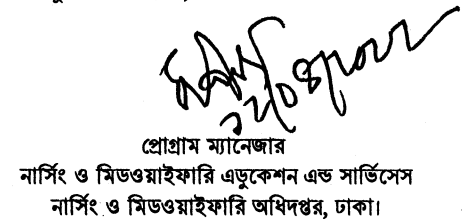 প্রোগ্রাম ম্যানেজার
নার্সিং ও মিডওয়াইফারি এডুকেশন এন্ড সার্ভিসেস
নার্সিং ও মিডওয়াইফারি অধিদপ্তর, ঢাকা।